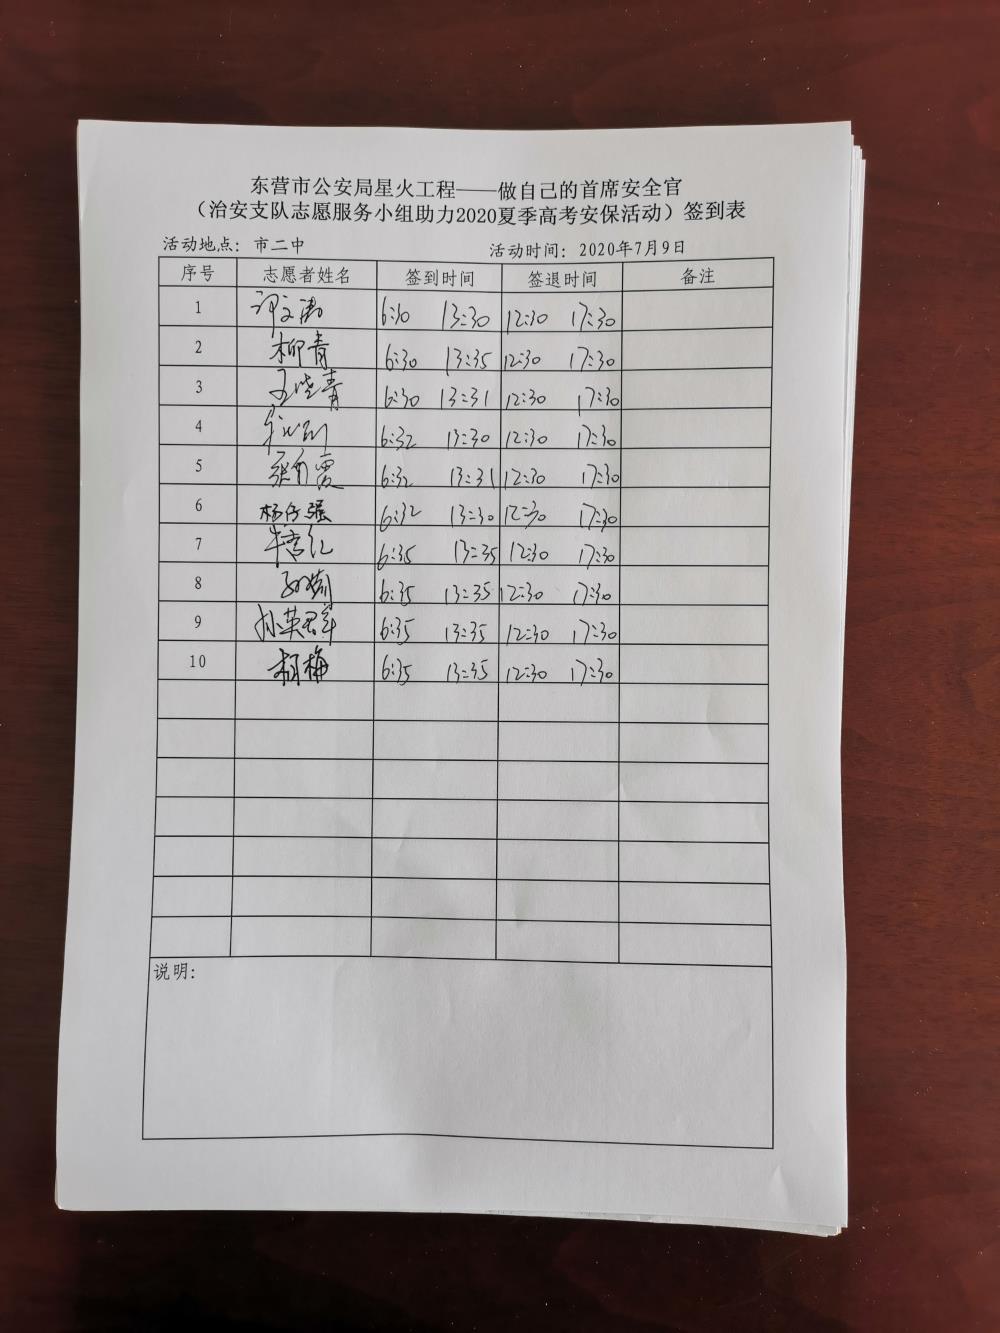 东营市公安局星火工程——做自己的首席安全官
（治安支队志愿服务小组助力2020夏季高考安保活动）签到表
活动地点：市二中 活动时间：2020年7月9日
序号 志愿者姓名 签到时间 签退时间 备注
1 6:30 13:30 12:30 17:30
2 柳青 6:30 13:35 12:30 17:30
3 王晓青 6:30 13:31 12:30 17:30
4 6:32 13:30 12:30 17:30
5 6:32 13:31 12:30 17:30
6 6:32 13:30 12:30 17:30
7 6:35 13:35 12:30 17:30
8 6:35 13:35 12:30 17:30
9 孙英群 6:35 13:35 12:30 17:30
10 胡梅 6:35 13:35 12:30 17:30
说明：